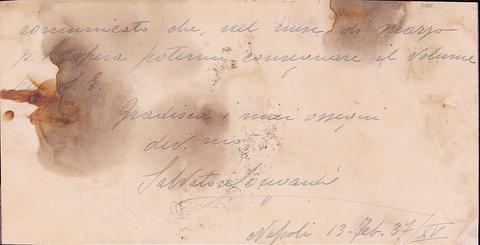 comunicato che, nel mese di marzo
p. spera potermi consegnare il volume
S. E.
Gradisca i miei ossequi
dev.mo
Salvatore
Napoli 13. feb. 37/XV